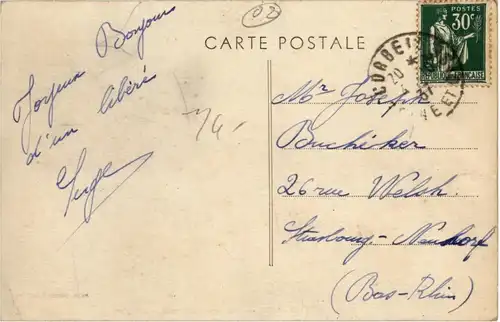 Bonjour
Joyeux
d'un libéré
Serge
02
CARTE POSTALE
74-
POSTES
30c
REPUBLIQUE FRANÇAISE
CORBEIL
20
37
ET
Mr Joseph
Buchecker
26 rue Welsh
Strasbourg-Neudorf
(Bas-Rhin)